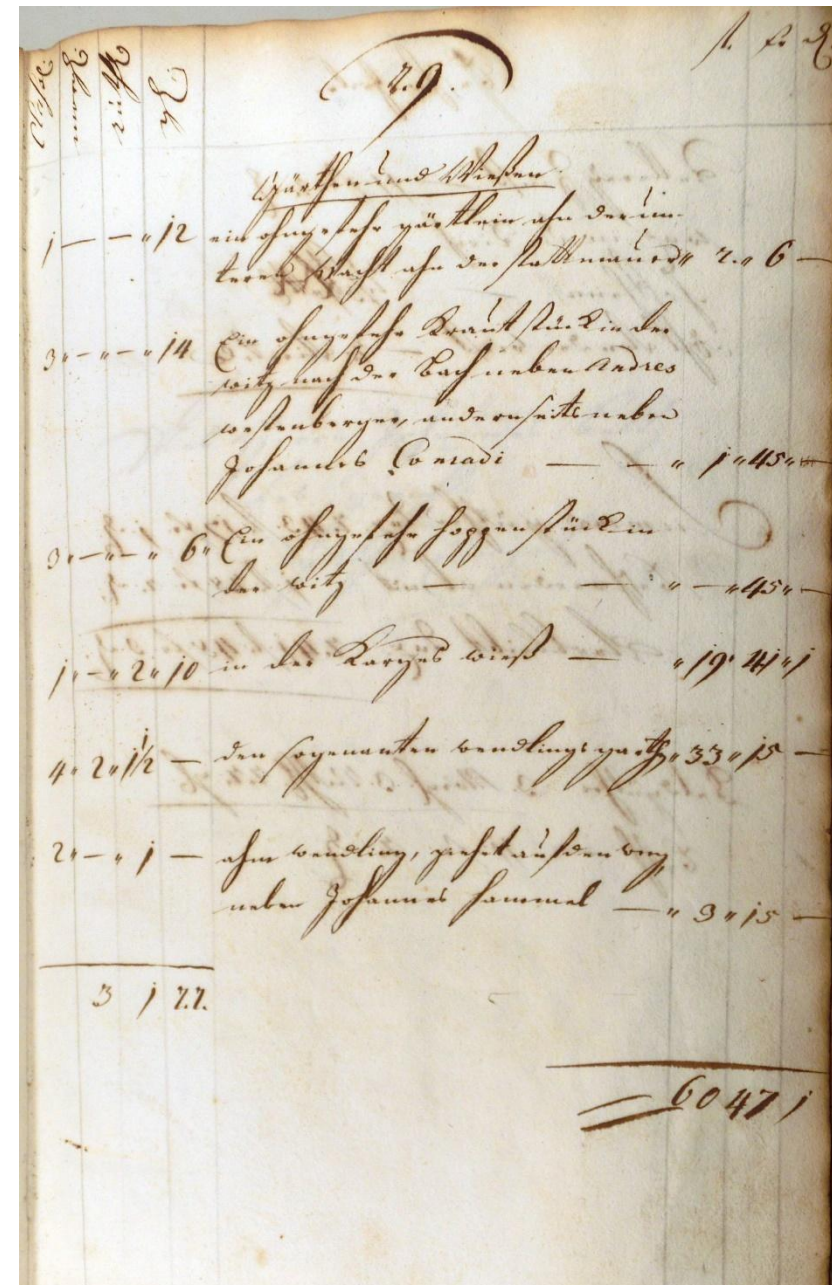 fl. xr. ₰
29.
Gärthen und Wießen
1 — — " 12 ein ohngefehr gärtlein ahn der un-
teren Wacht ahn der stattmauer " 2. " 6 —
3 " — " — " 14 Ein ohngefehr Kraut stück in der
witz nach der Bach neben Andres
westenberger, andernseits neben
Johannes Conradi — — " 1 " 45 " —
3 " — " — " 6 " Ein ohngefehr hoppen stück in
der witz — — " — " 45 " —
1 " — " 2 " 10 in der Karges wieß — " 19 " 41 " 1
4 " 2 " 1 1/2 — den sogenanten wendlings garth " 33 " 15 —
2 " — " 1 — ahm wendling, ziehet auf den weg
neben Johannes Hammel — " 3 " 15 —
3 1 22.
60 47 1